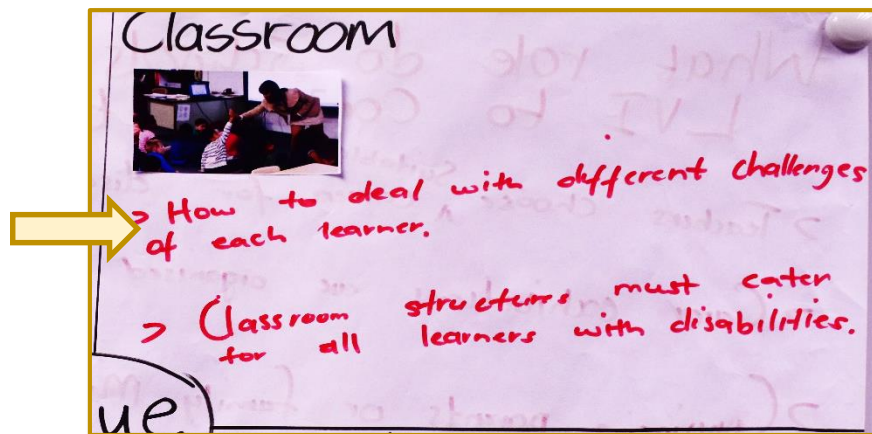 Classroom
> How to deal with different challenges
of each learner.
> Classroom structures must cater
for all learners with disabilities.
ue